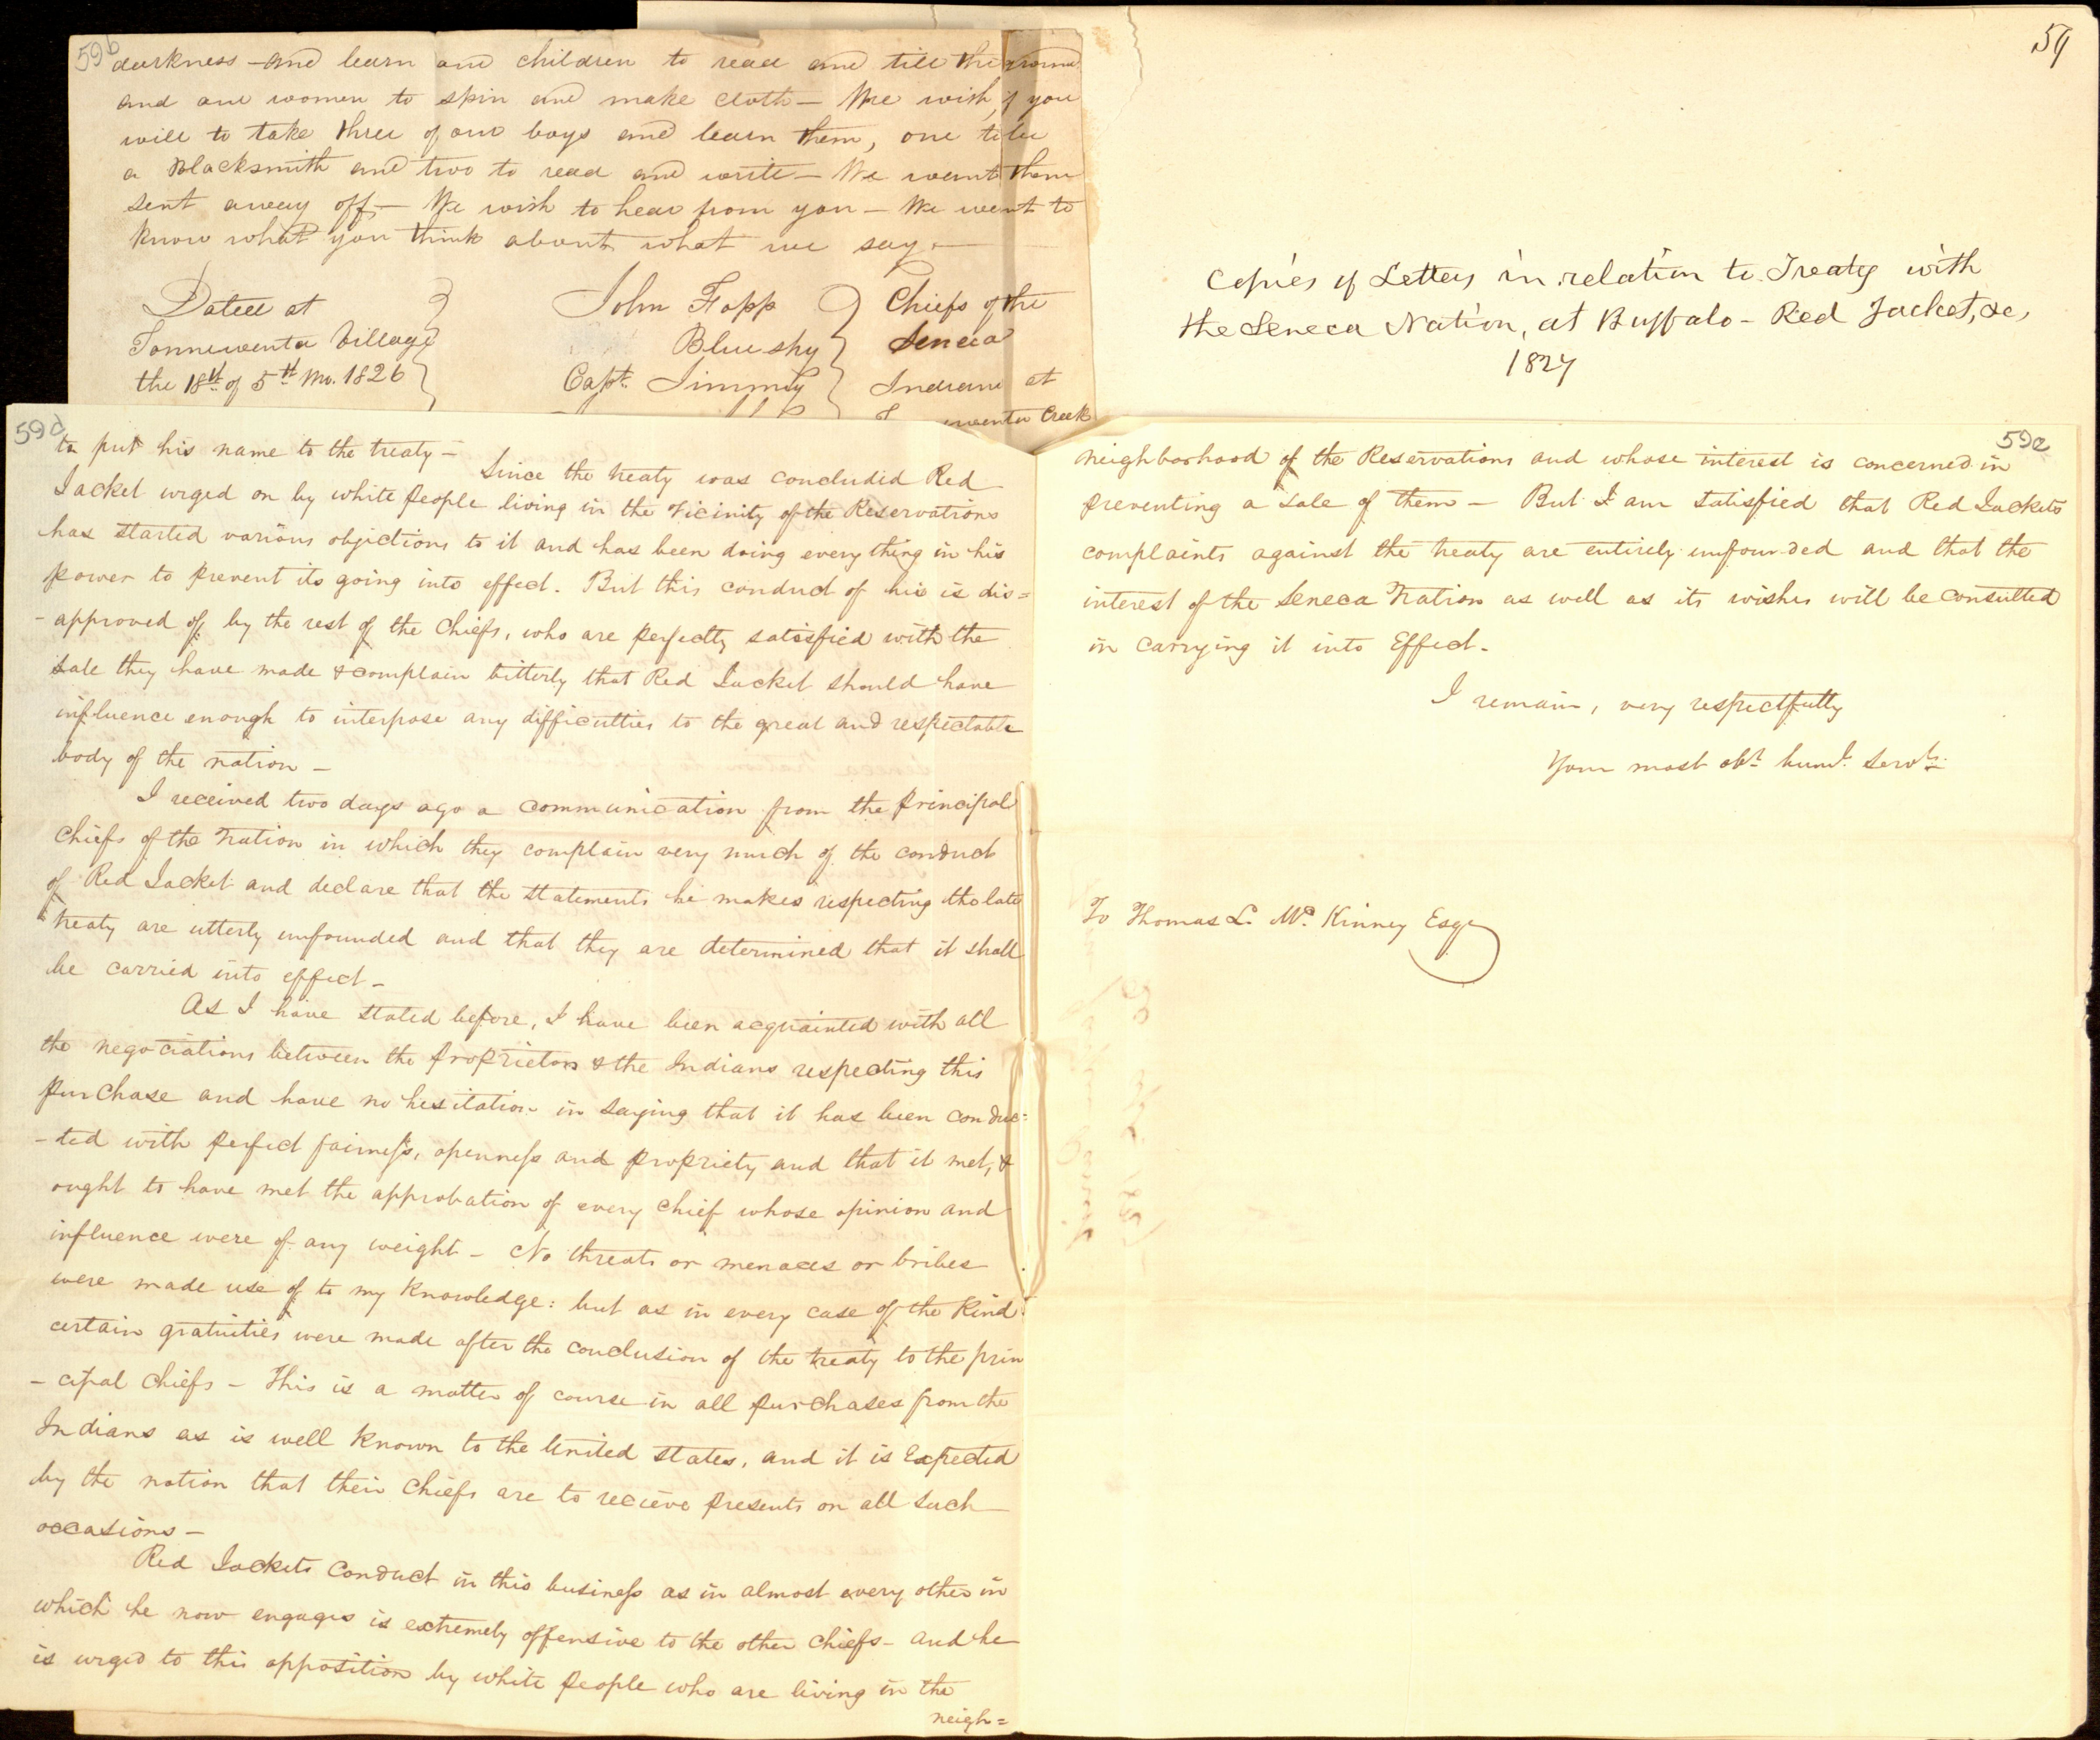 59b
darkness - and learn our children to read and till the ground
and our women to spin and make cloth - We wish, if you
will to take three of our boys and learn them, one to be
a Blacksmith and two to read and write - We want them
sent away off, - We wish to hear from you - We want to
know what you think about what we say -
Dated at
Tonnewenta Village
the 18th of 5th Mo. 1826
John Fapp
Blue sky
Capt. Jimmy
Chiefs of the
Seneca
Indians at
Creek
59
Copies of Letters in relation to Treaty with
the Seneca Nation, at Buffalo - Red Jacket, &c,
1827
59d
to put his name to the treaty -
Since the treaty was concluded Red
Jacket urged on by white people living in the vicinity of the Reservations
has started various objections to it and has been doing every thing in his
power to prevent its going into effect. But this conduct of his is dis=
-approved of by the rest of the Chiefs, who are perfectly satisfied with the
sale they have made & complain bitterly that Red Jacket should have
influence enough to interpose any difficulties to the great and respectable
body of the nation -
I received two days ago a communication from the principal
Chiefs of the Nation in which they complain very much of the conduct
of Red Jacket and declare that the statements he makes respecting the late
treaty are utterly unfounded and that they are determined that it shall
be carried into effect -
As I have stated before, I have been acquainted with all
the negociations between the proprietors & the Indians respecting this
purchase and have no hesitation in saying that it has been conduc=
-ted with perfect fairness, openness and propriety and that it met, &
ought to have met the approbation of every Chief whose opinion and
influence were of any weight - No threats or menaces or bribes
were made use of to my Knowledge: but as in every case of the Kind
certain gratuities were made after the conclusion of the treaty to the prin
-cipal Chiefs - This is a matter of course in all purchases from the
Indians as is well Known to the United States, and it is Expected
by the nation that their Chiefs are to recieve presents on all such
occasions -
Red Jackets conduct in this business as in almost every other in
which he now engages is extremely offensive to the other Chiefs - and he
is urged to this opposition by white people who are living in the
neigh=
59e
neighborhood of the Reservations and whose interest is concerned in
preventing a sale of them - But I am satisfied that Red Jackets
complaints against the treaty are entirely unfounded and that the
interest of the Seneca Nation as well as its wishes will be consulted
in carrying it into Effect.
I remain, very respectfully
Your most obt. huml. servt.
To Thomas L. Mc. Kinney Esqr